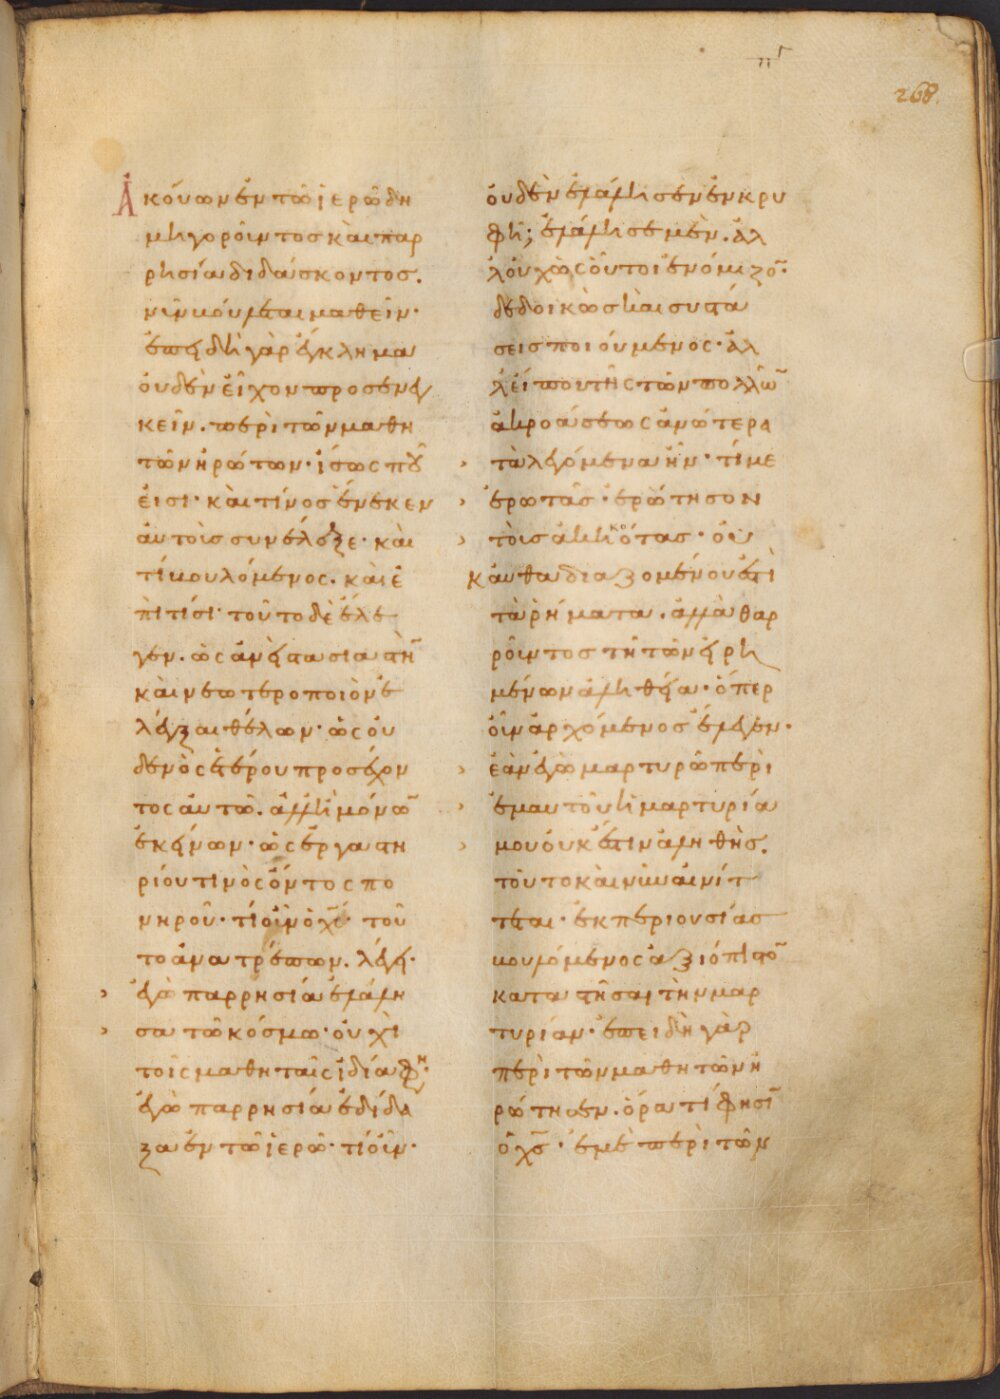 πγ
268.
Ἀκούων ἐν τῶ ἱερῶ δη
μηγοροῦντος καὶ παρ
ρησία διδάσκοντος.
νῦν βούλεται μαθεῖν·
ἐπειδὴ γὰρ ἔγκλημα
οὐδὲν εἶχον προσενεγ
κεῖν. περὶ τῶν μαθη
τῶν ἠρώτων· ἴσως ποῦ
εἰσι· καὶ τίνος ἕνεκεν
αὐτοῖς συνέλεξε· καὶ
τί βουλόμενος. καὶ ἐ
πὶ τίσι· τοῦτο δὲ ἔλε
γεν. ὡς ἀνέστασιαστὴν
καὶ νεωτεροποιὸν ἐ
λέγξαι θέλων· ὡς οὐ
δενὸς ἑτέρου προσέχον
τος αὐτῶ. ἀλλ' ἢ μόνων
ἐκείνων· ὡς ἐργαστη
ρίου τινὸς ὄντος πο
νηροῦ· τί οὖν ὁ χς· τοῦ
το ἀνατρέπων. λέγει·
ἐγὼ παρρησία ἐλάλη
σα τῶ κόσμω· οὐχὶ
τοῖς μαθηταῖς ἰδία φη·
ἐγὼ παρρησία ἐδίδα
ξα ἐν τῶ ἱερῶ· τί οὖν·
οὐδὲν ἐλάλησεν ἐν κρυ
φῆ; ἐλάλησε μὲν. ἀλ
λ' οὐχ ὡς οὗτοι ἐνόμιζον·
δεδοικὼς καὶ συστά
σεις ποιούμενος· ἀλ
λ' εἴπου τῆς τῶν πολλῶν
ἀκροάσεως ἀνώτερα
τὰ λεγόμενα ἦν· τί με
ἐρωτᾶς· ἐρώτησον
τοὺς ἀκηκοότας· οὐκ
αὐθαδιαζομένου ἐστὶ
τὰ ῥήματα. ἀλλὰ θαρ
ροῦντος τῆ τῶν εἰρη
μένων ἀληθεία· ὅπερ
οὖν ἀρχόμενος ἔλεγεν·
ἐὰν ἐγὼ μαρτυρῶ περὶ
ἐμαυτοῦ ἡ μαρτυρία
μου οὐκ ἔστιν ἀληθής.
τοῦτο καὶ νῦν αἰνίτ
τεται· ἐκ περιουσίας
βουλόμενος ἀξιόπιστον
καταστῆσαι τὴν μαρ
τυρίαν· ἐπειδὴ γὰρ
περὶ τῶν μαθητῶν ἠ
ρώτησεν. ὅρα τί φησὶν
ὁ χς· ἐμὲ περὶ τῶν